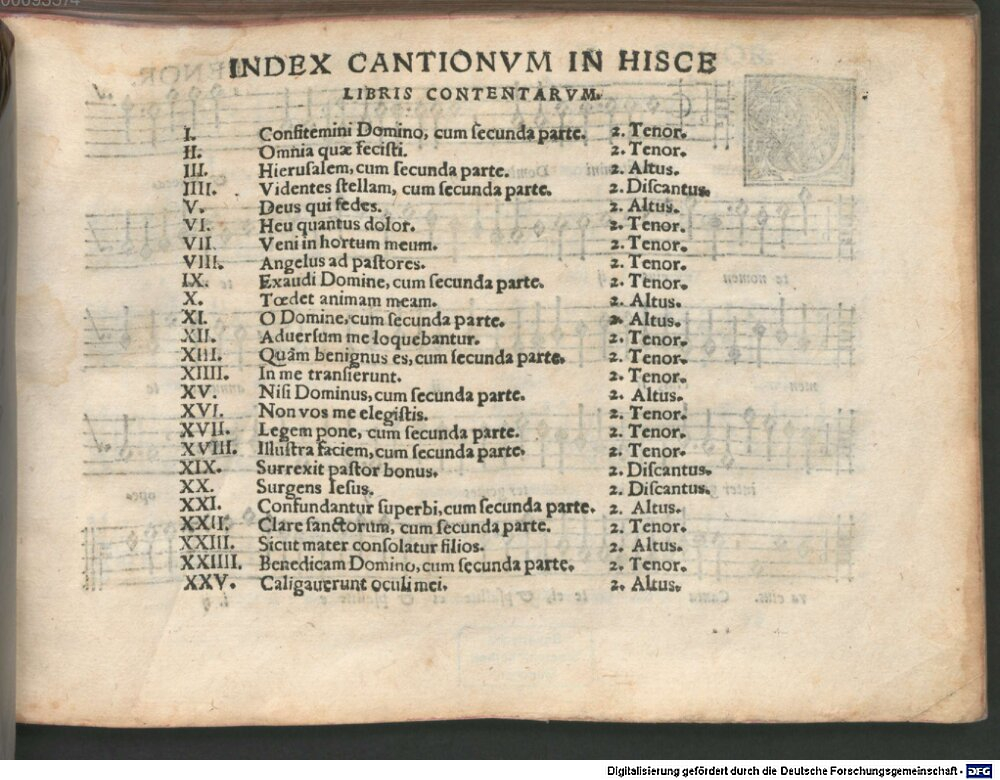 INDEX CANTIONVM IN HISCE
LIBRIS CONTENTARVM.
I. Confitemini Domino, cum ſecunda parte. 2. Tenor.
II. Omnia quæ feciſti. 2. Tenor.
III. Hieruſalem, cum ſecunda parte. 2. Altus.
IIII. Videntes ſtellam, cum ſecunda parte. 2. Diſcantus.
V. Deus qui ſedes. 2. Altus.
VI. Heu quantus dolor. 2. Tenor.
VII. Veni in hortum meum. 2. Tenor.
VIII. Angelus ad paſtores. 2. Tenor.
IX. Exaudi Domine, cum ſecunda parte. 2. Tenor.
X. Tœdet animam meam. 2. Altus.
XI. O Domine, cum ſecunda parte. 2. Altus.
XII. Aduerſum me loquebantur. 2. Tenor.
XIII. Quâm benignus es, cum ſecunda parte. 2. Tenor.
XIIII. In me tranſierunt. 2. Tenor.
XV. Niſi Dominus, cum ſecunda parte. 2. Altus.
XVI. Non vos me elegiſtis. 2. Tenor.
XVII. Legem pone, cum ſecunda parte. 2. Tenor.
XVIII. Illuſtra faciem, cum ſecunda parte. 2. Tenor.
XIX. Surrexit paſtor bonus. 2. Diſcantus.
XX. Surgens Ieſus. 2. Diſcantus.
XXI. Confundantur ſuperbi, cum ſecunda parte. 2. Altus.
XXII. Clare ſanctorum, cum ſecunda parte. 2. Tenor.
XXIII. Sicut mater conſolatur filios. 2. Altus.
XXIIII. Benedicam Domino, cum ſecunda parte. 2. Tenor.
XXV. Caligauerunt oculi mei. 2. Altus.
Digitalisierung gefördert durch die Deutsche Forschungsgemeinschaft - DFG